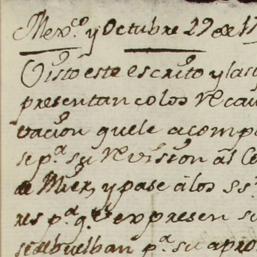 Mex.co y Octubre 29 de 17
Visto este escrito y las
presentan co los recau
vacion que le acompa
se pa. su revision al Co
de Mier, y pase á los SS.
res pa. qe. expresen su
se debuelban pa. su apro